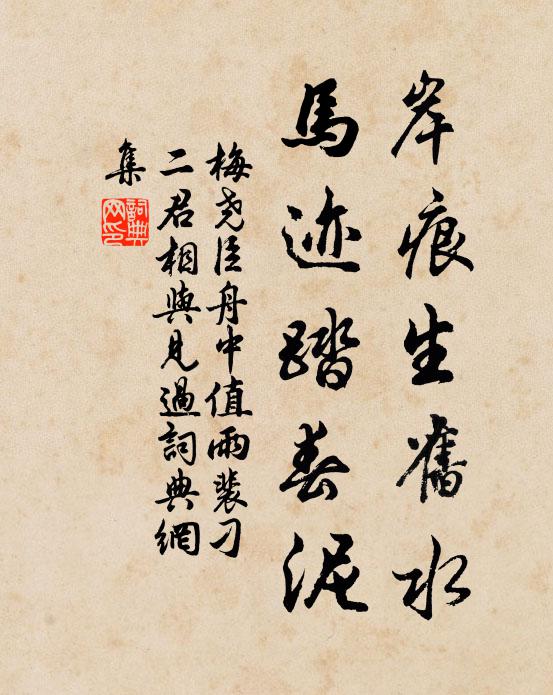 岸痕生舊水
馬迹踏春泥
梅堯臣舟中值雨裴刁
二君相與見過詞典網
集
詞典
网印